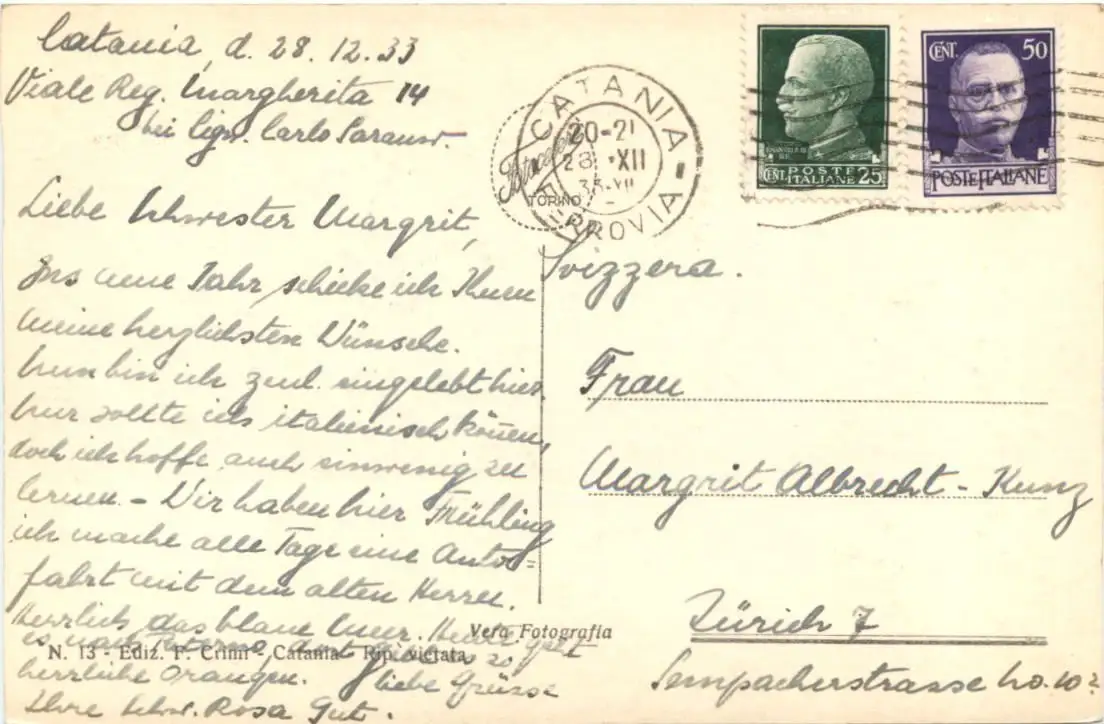 Catania, d. 28.12.33
Viale Reg. Margherita 14
bei Sign. Carlo
Liebe Schwester Margrit,
Ins neue Jahr schicke ich Ihnen
meine herzlichsten Wünsche.
Nun bin ich ziml. eingelebt hier
nur sollte ich italienisch können,
doch ich hoffe auch ein wenig zu
lernen. - Wir haben hier Frühling
ich mache alle Tage eine Auto=
fahrt mit dem alten Herren.
Herrlich das blaue Meer. Heute geht
es nach Paterno, dort so
herrliche Orangen. Liebe Grüsse
Ihre Schw. Rosa Gut.
N. 13 - Ediz. F. Crimi - Catania - Rip. vietata
Vera Fotografia
CATANIA
FERROVIA
20-21
28 XII
TORINO
POSTE
ITALIANE
CENT. 25
CENT. 50
POSTE ITALIANE
Svizzera.
Frau
Margrit Albrecht - Kunz
Zürich 7
Sempacherstrasse